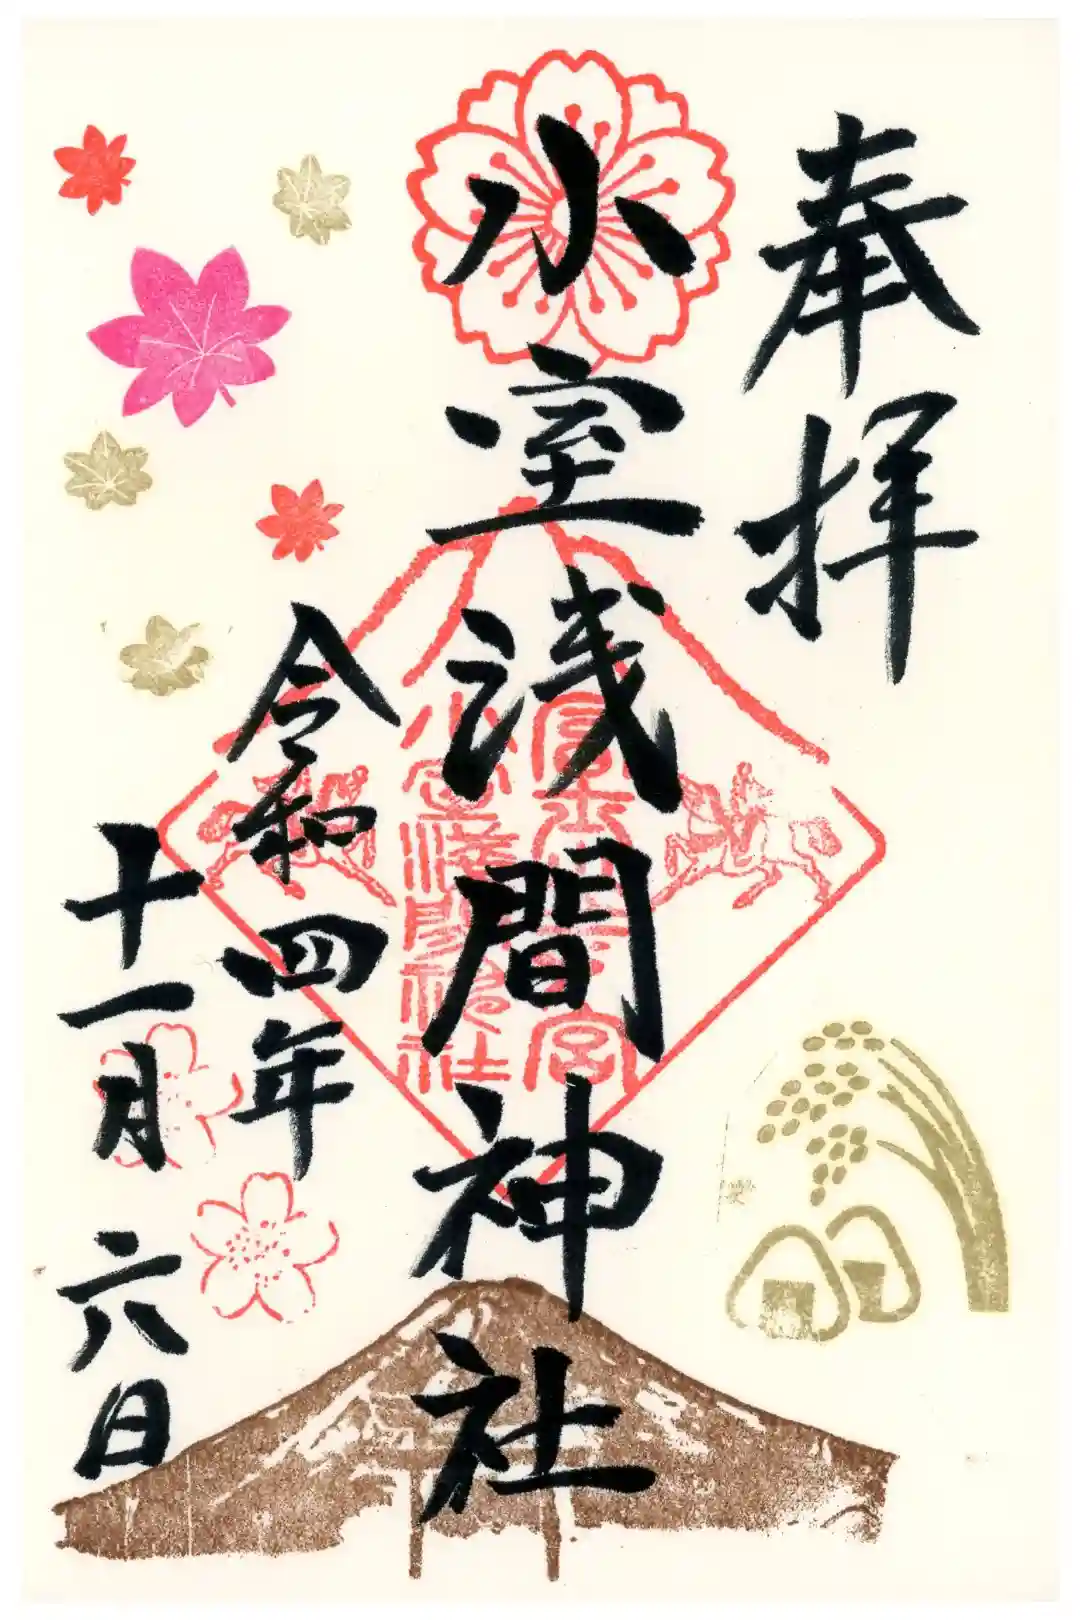 奉拝
小室浅間神社
令和四年
十一月六日
小室浅間神社